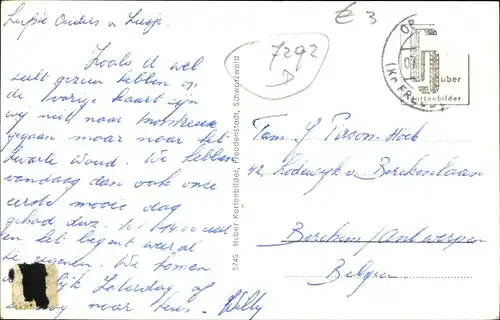 Liefste Ouders
Zoals U wel
zult gezien hebben op
de vorige kaart zijn
wij niet naar
gegaan maar naar het
Zwarte Woud. We hebben
vandaag dan ook onze
eerste mooie dag
gehad dwz. 14.00 uur
en het begint weeral
te regenen. We komen
Zaterdag of
naar huis. Willy
€ 3
7292
D
5745 Huber Kartenbilder, Freudenstadt, Schwarzwald
Huber
Kartenbilder
Fam. J Pirson-Hoek
42, Lodewijk v. Berckenlaan
Berchem/Antwerpen
Belgien